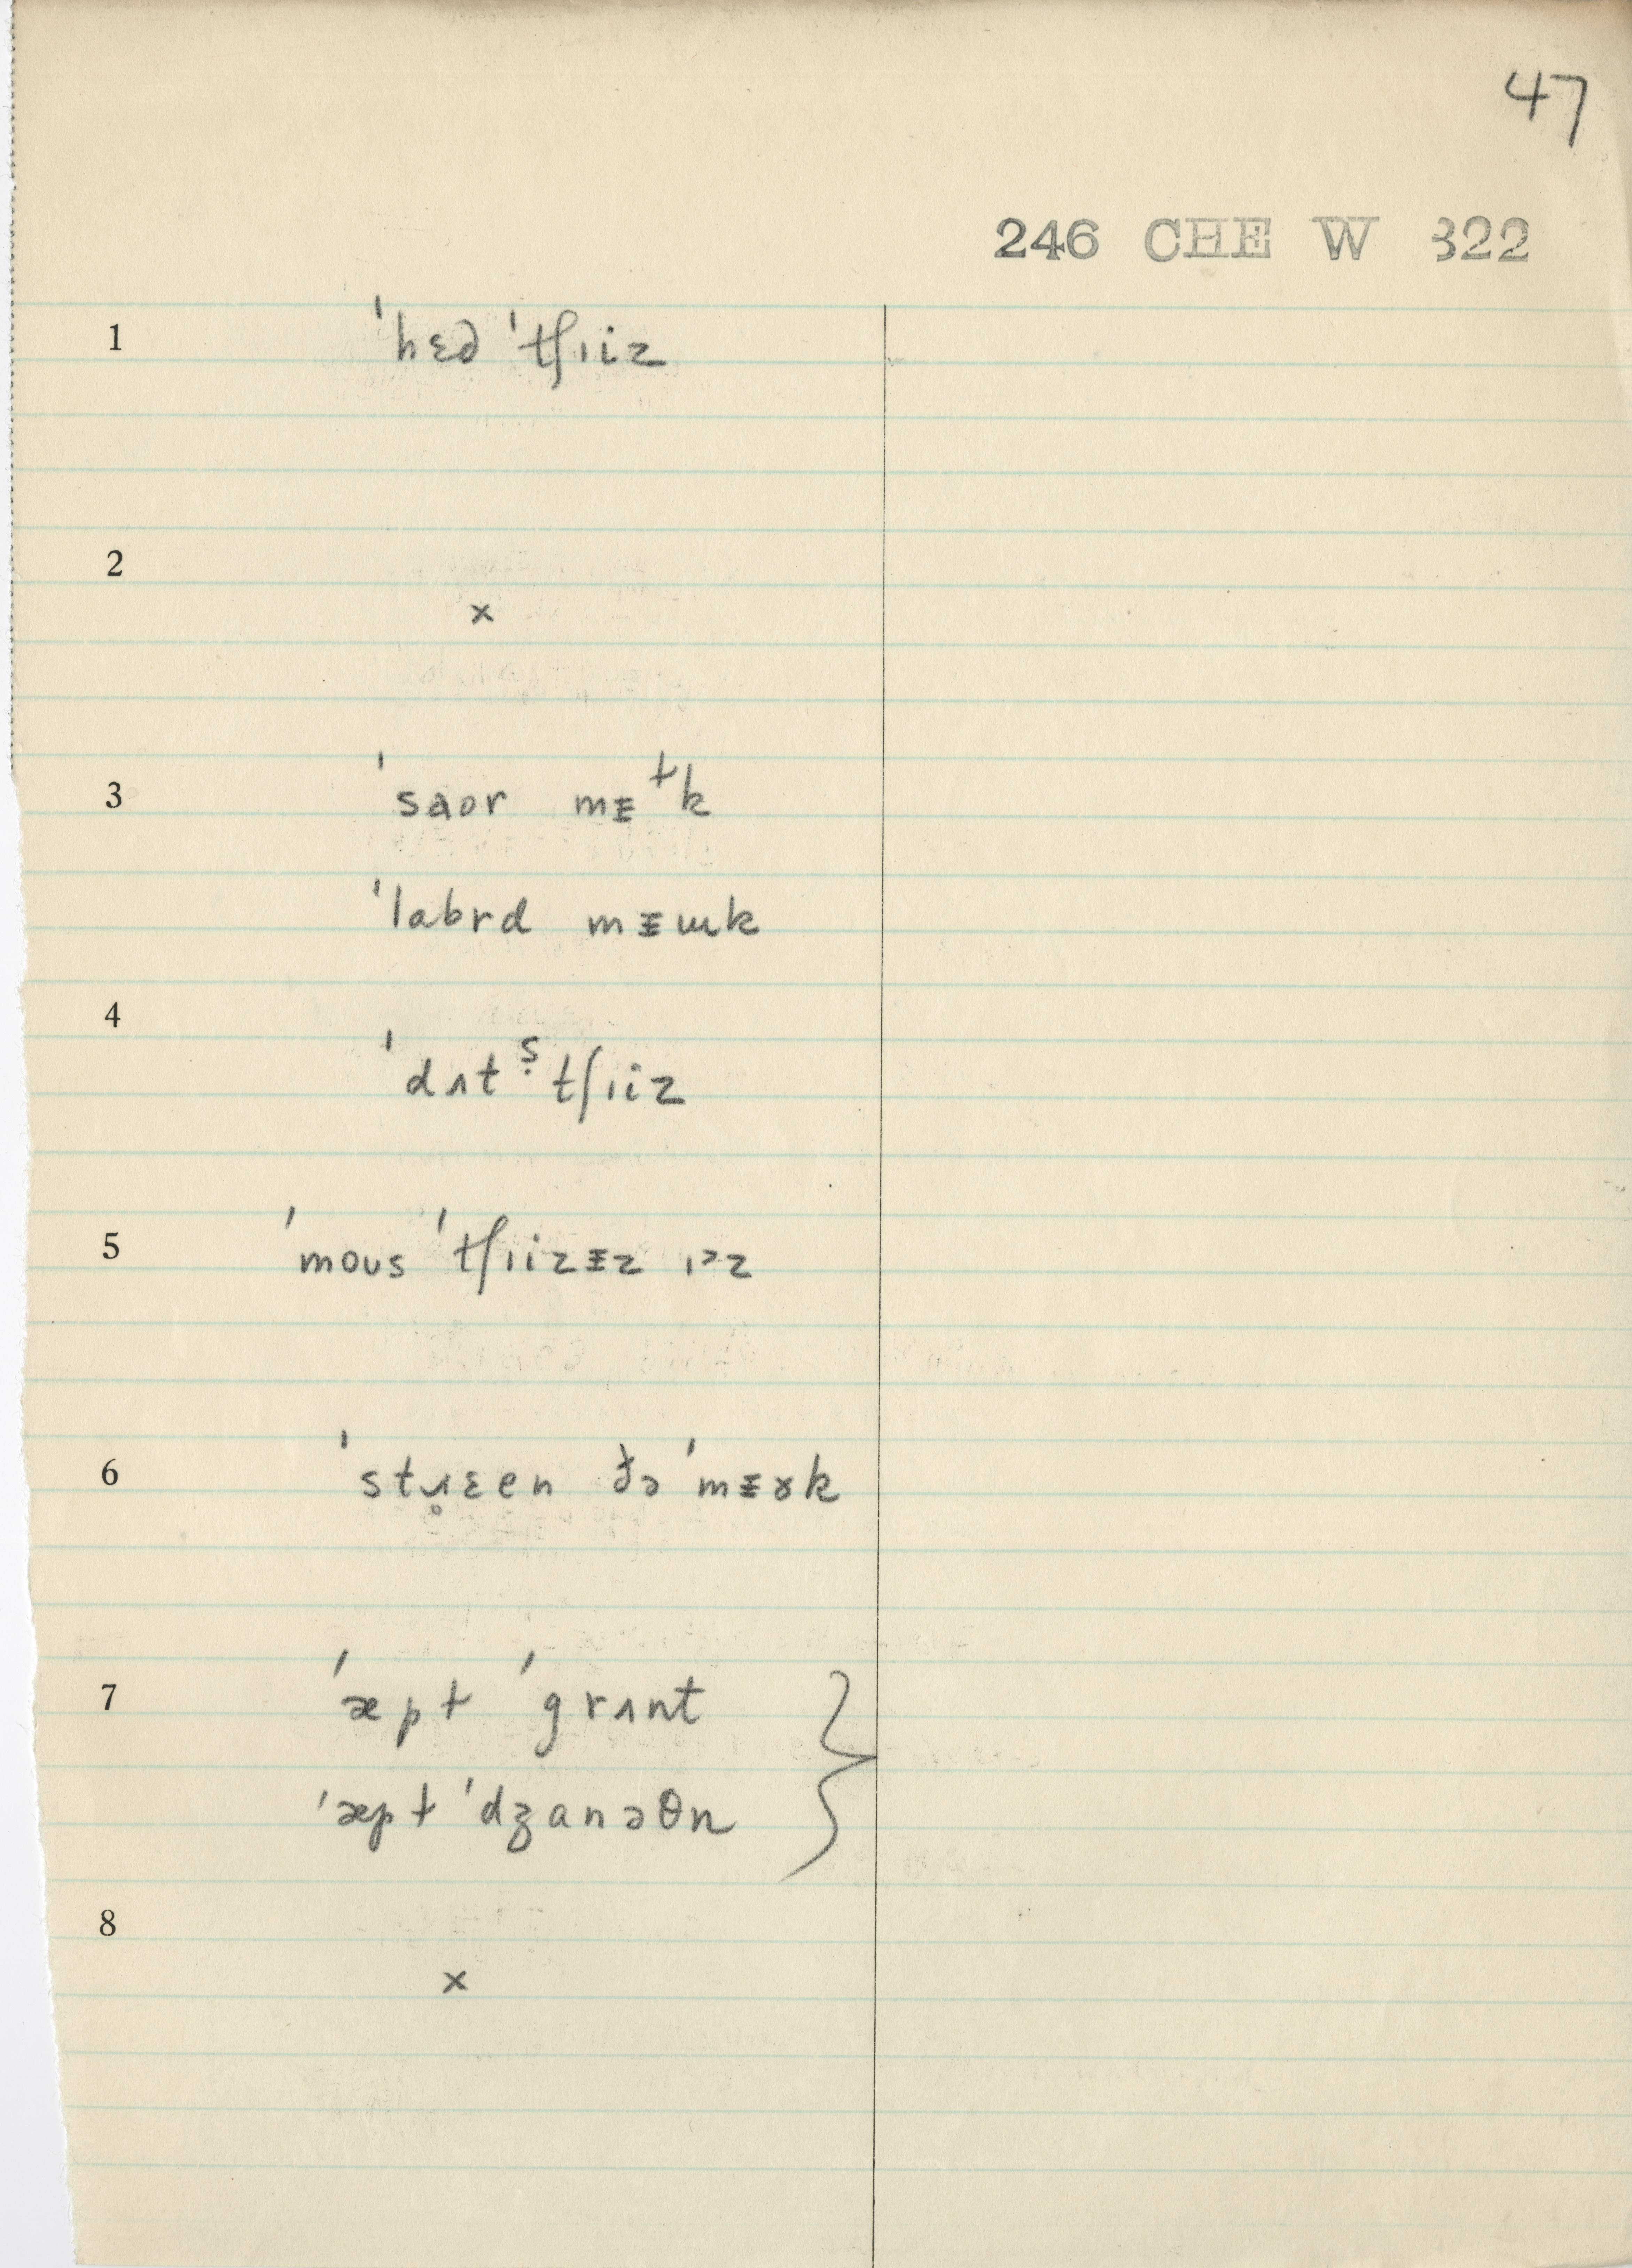 47
246 CHE W 322
1 ˈhɛd ˈtʃɪiz
2
x
3 ˈsaor mᵻɫk
ˈlabrd mᵻɯk
4
ˈdʌtṣ tʃɪiz
5 ˈmoʊs ˈtʃɪizᵻz ɪᵊz
6 ˈstɹ̥ɛen ðə ˈmᵻɤk
7 ˈæpɫ ˈgrʌnt
ˈæpɫ ˈdʒanəθn
8
x